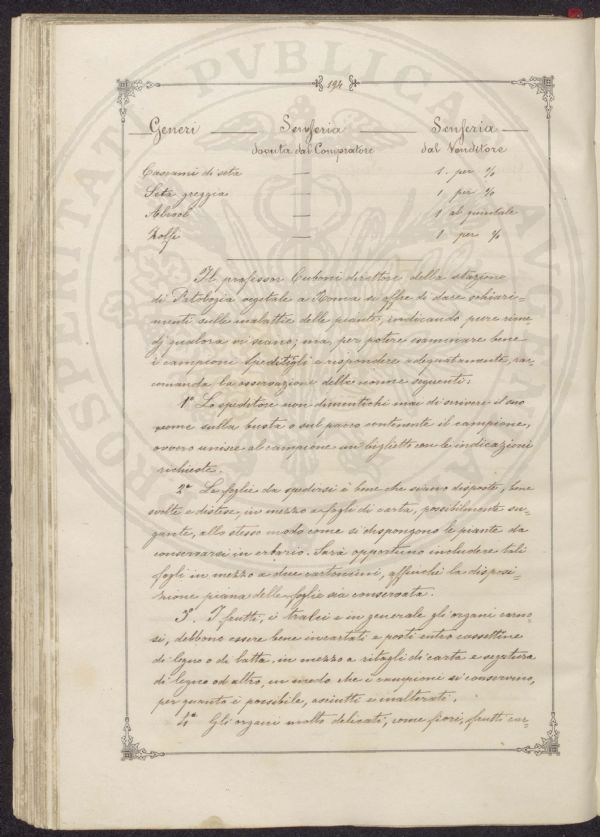 194
Generi — Senseria — Senseria
dovuta dal Compratore dal Venditore
Cascami di seta — 1 per %
Seta greggia — 1 per %
Alcool — 1 al quintale
Zolfi — 1 per %
Il professor Cuboni direttore della stazione
di Patologia vegetale a Roma si offre di dare schiari=
menti sulle malattie delle piante, indicando pure rime=
dj qualora vi siano; ma, per potere esaminare bene
i campioni speditigli e rispondere adeguatamente, rac=
comanda la osservazione delle norme seguenti:
1° Lo speditore non dimentichi mai di scrivere il suo
nome sulla busta o sul pacco contenente il campione,
ovvero unisca al campione un biglietto con le indicazioni
richieste.
2° Le foglie da spedirsi è bene che siano disposte, bene
svolte e distese, in mezzo a fogli di carta, possibilmente su=
gante, allo stesso modo come si dispongono le piante da
conservarsi in erbario. Sarà opportuno includere tali
fogli in mezzo a due cartoncini, affinchè la disposi=
zione piana delle foglie sia conservata.
3°. I frutti, i tralci e in generale gli organi carno
si, debbono essere bene incartati e posti entro cassettine
di legno o di latta, in mezzo a ritagli di carta e segatura
di legno od altro, in modo che i campioni si conservino,
per quanto è possibile, asciutti e inalterati.
4° Gli organi molto delicati, come fiori, frutti car=
PROSPERITATI PVBLICAE